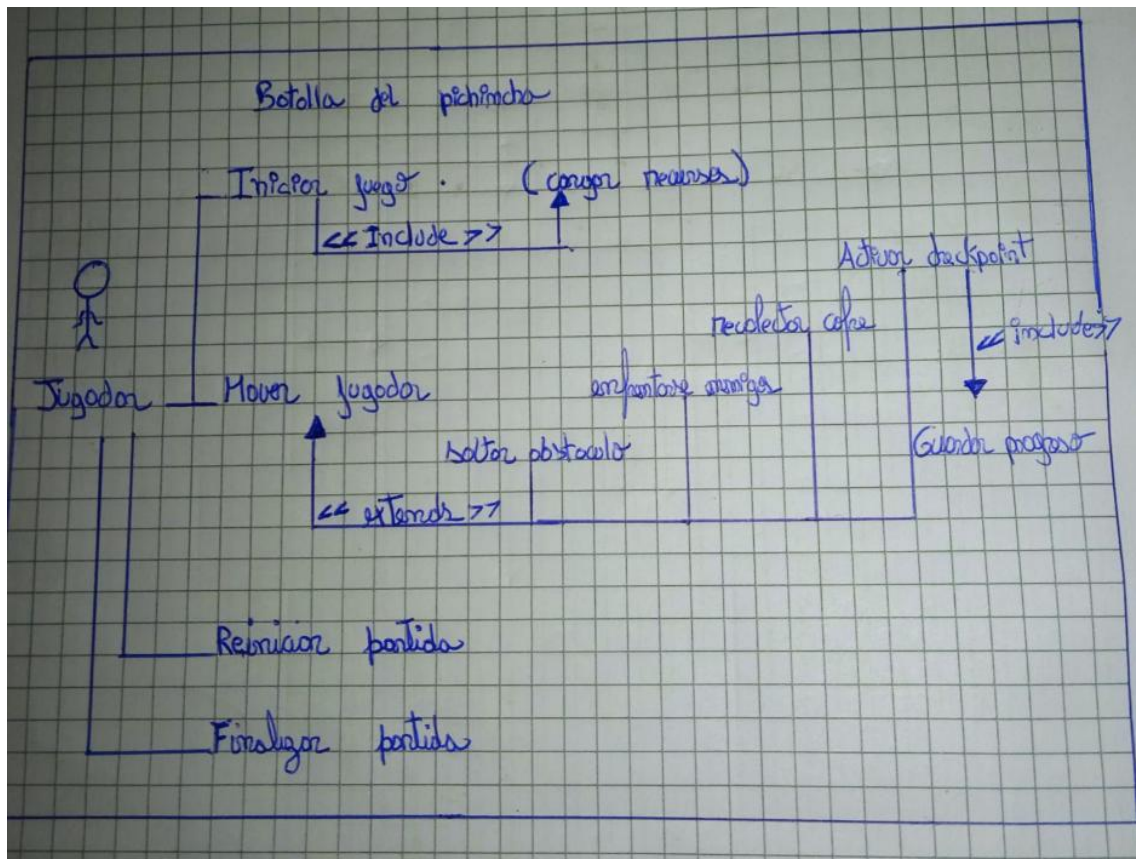 Batalla del pichincha
Iniciar juego . (cargar recursos)
<< Include >>
Activar checkpoint
recolector cofre
<< include >>
Jugador
Mover jugador
enfrentarse enemigos
saltar obstaculo
Guardar progreso
<< extends >>
Reiniciar partida
Finalizar partida